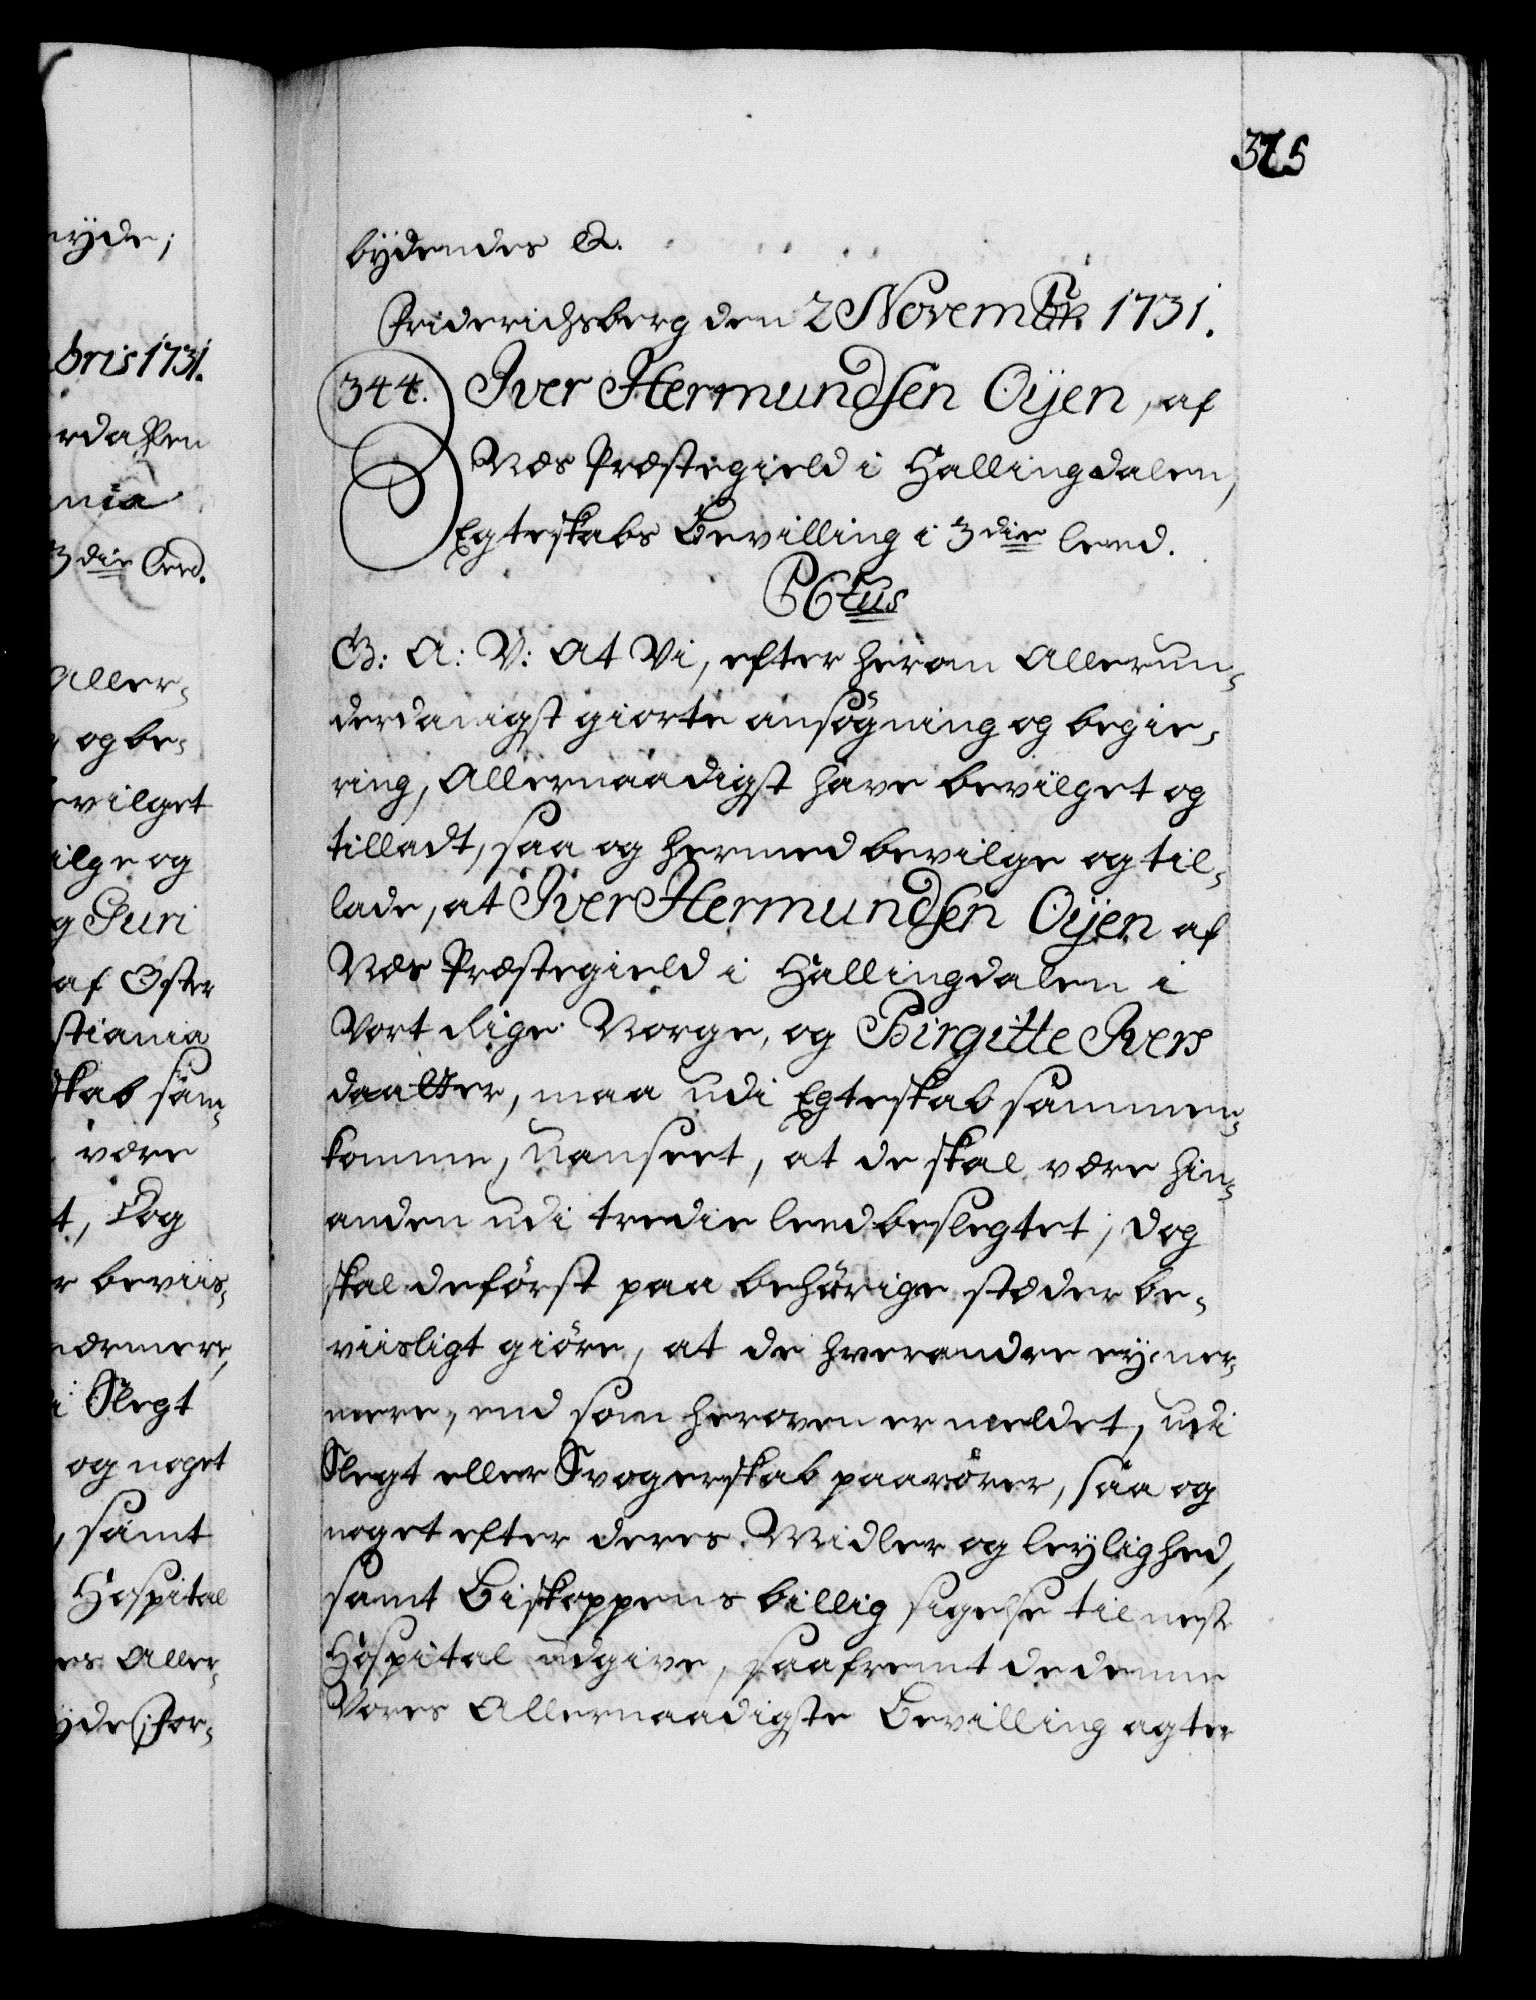 nyde;
bris 1731.
rdahlen
nia
3 die Leed.
Aller-
og be-
evilget
ilge og
g Guri
af Oster
stiania
skab sam-
være
t, Dog
r beviis-
nærmere,
i Slegt
og noget
, samt
Hospital
es Aller-
yde, for-
375
bydendes &.
Friderichsberg den 2 Novembr: 1731.
344. Iver Hermundsen Oyen, af
Næs Præstegield i Hallingdalen,
Egteskabs Bevilling i 3 die leed.
PCtus
G: A: V: At Vi, efter herom Allerun-
derdanigst giorte ansögning og begie-
ring, Allernaadigst have bevilget og
tilladt, saa og hermed bevilge og til-
lade, at Iver Hermundsen Oyen af
Næs Præstegield i Hallingdalen i
Vort Rige Norge, og Birgitte Ivers
daatter, maa udi Egteskab sammen-
komme, uanseet, at de skal være hin-
anden udi tredie leed beslegtet; dog
skal de först paa behörige stæder be-
viisligt giöre, at de hverandre ey ner-
mere, end som heroven er meldet, udi
Slegt eller Svogerskab paarörer, saa og
noget efter deres Midler og leylighed,
samt Biskoppens billig sigelse til nest
Hospital udgive, saafremt de denne
Vores Allernaadigste Bevilling agter